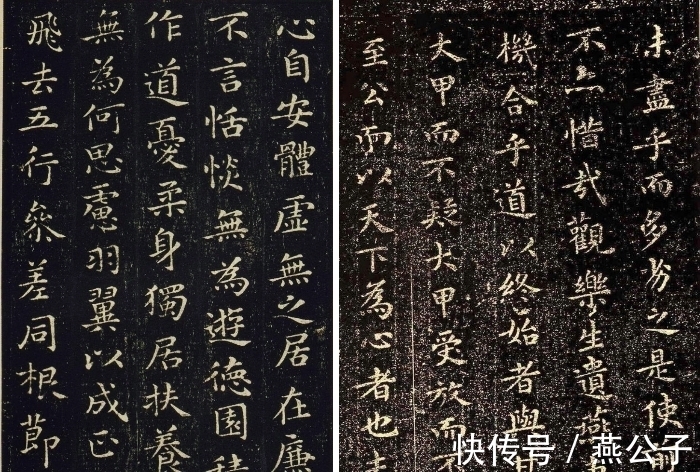 心自安體虛無之居在廉
不言恬惔無為遊德園積
作道憂柔身獨居扶養
無為何思慮羽翼以成正
飛去五行參差同根節
未盡乎而多劣之是使前
不亦惜哉觀樂生遺燕
機合乎道以終始者與
大甲而不疑大甲受放而不
至公而以天下為心者也夫
快传号 / 燕公子